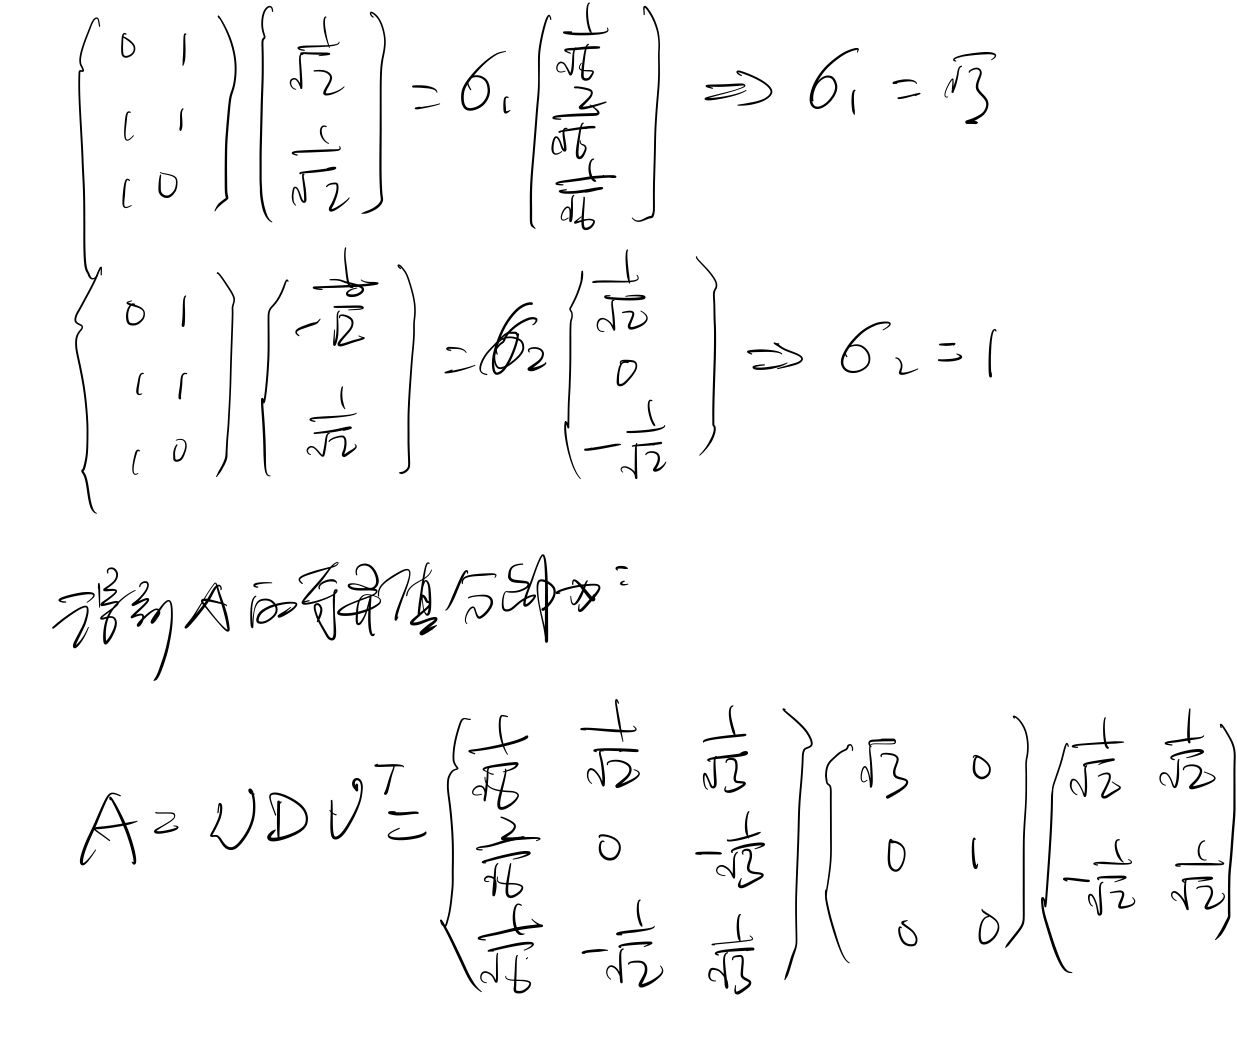 \begin{pmatrix} 0 & 1 \\ 1 & 1 \\ 1 & 0 \end{pmatrix} \begin{pmatrix} \frac{1}{\sqrt{2}} \\ \frac{1}{\sqrt{2}} \end{pmatrix} = σ_1 \begin{pmatrix} \frac{1}{\sqrt{6}} \\ \frac{2}{\sqrt{6}} \\ \frac{1}{\sqrt{6}} \end{pmatrix} ⇒ σ_1 = \sqrt{3}
\begin{pmatrix} 0 & 1 \\ 1 & 1 \\ 1 & 0 \end{pmatrix} \begin{pmatrix} -\frac{1}{\sqrt{2}} \\ \frac{1}{\sqrt{2}} \end{pmatrix} = σ_2 \begin{pmatrix} \frac{1}{\sqrt{2}} \\ 0 \\ -\frac{1}{\sqrt{2}} \end{pmatrix} ⇒ σ_2 = 1
得到 A 的奇异值分解为:
A = U D V^T = \begin{pmatrix} \frac{1}{\sqrt{6}} & \frac{1}{\sqrt{2}} & \frac{1}{\sqrt{3}} \\ \frac{2}{\sqrt{6}} & 0 & -\frac{1}{\sqrt{3}} \\ \frac{1}{\sqrt{6}} & -\frac{1}{\sqrt{2}} & \frac{1}{\sqrt{3}} \end{pmatrix} \begin{pmatrix} \sqrt{3} & 0 \\ 0 & 1 \\ 0 & 0 \end{pmatrix} \begin{pmatrix} \frac{1}{\sqrt{2}} & \frac{1}{\sqrt{2}} \\ -\frac{1}{\sqrt{2}} & \frac{1}{\sqrt{2}} \end{pmatrix}